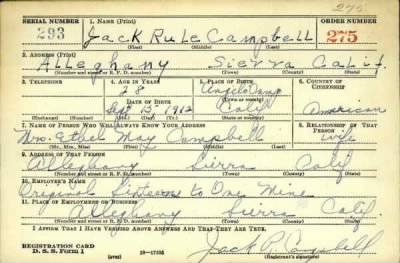 275
SERIAL NUMBER 1. NAME (Print) ORDER NUMBER
293 Jack Rule Campbell 275
(First) (Middle) (Last)
2. ADDRESS (Print)
Alleghany Sierra Calif.
(Number and street or R. F. D. number) (Town) (County) (State)
3. TELEPHONE 4. AGE IN YEARS 5. PLACE OF BIRTH 6. COUNTRY OF CITIZENSHIP
28 Angels Camp
DATE OF BIRTH (Town or county)
Sept 13 1912 Calif American
(Mo.) (Day) (Yr.) (State or country)
7. NAME OF PERSON WHO WILL ALWAYS KNOW YOUR ADDRESS 8. RELATIONSHIP OF THAT PERSON
Mrs Ethel May Campbell Wife
(Mr., Mrs., Miss) (First) (Middle) (Last)
9. ADDRESS OF THAT PERSON
Alleghany Sierra Calif
(Number and street or R. F. D. number) (Town) (County) (State)
10. EMPLOYER'S NAME
Original Sixteen to One Mine
11. PLACE OF EMPLOYMENT OR BUSINESS
Alleghany Sierra Calif.
(Number and street or R. F. D. number) (Town) (County) (State)
I AFFIRM THAT I HAVE VERIFIED ABOVE ANSWERS AND THAT THEY ARE TRUE.
REGISTRATION CARD
D. S. S. Form 1 16—17105 Jack R Campbell
(Registrant's signature)